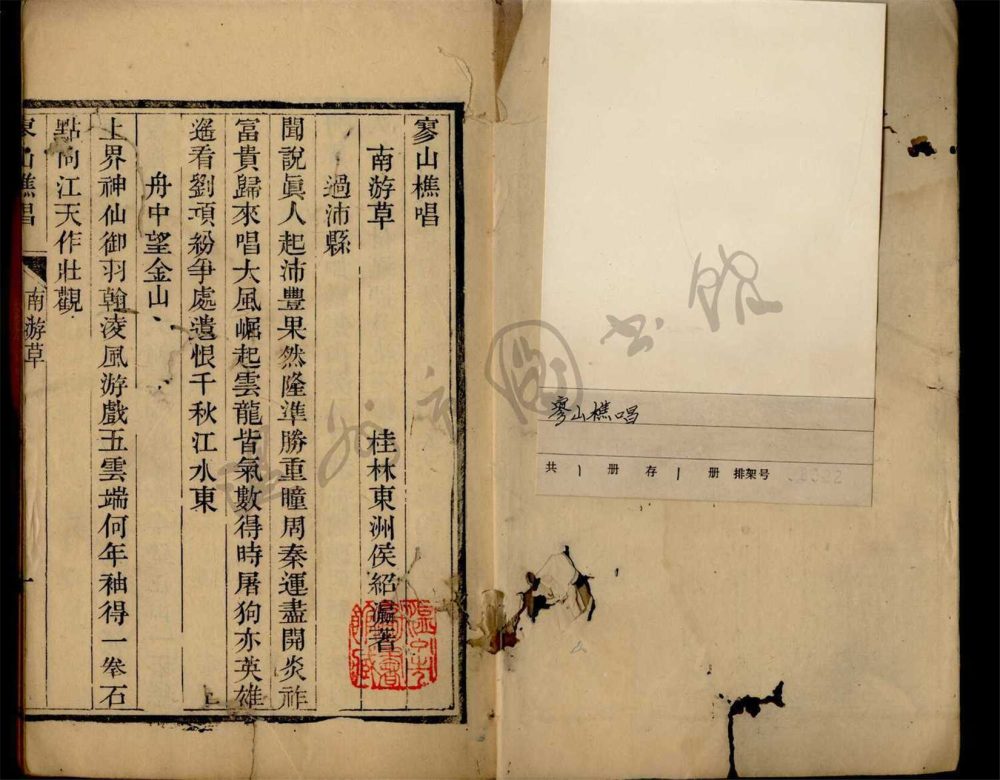 寥山樵唱
南游草
桂林東洲侯紹瀛著
過沛縣
聞說眞人起沛豐果然隆準勝重瞳周秦運盡開炎祚
富貴歸來唱大風崛起雲龍皆氣數得時屠狗亦英雄
遙看劉項紛爭處遺恨千秋江水東
舟中望金山
上界神仙御羽翰凌風游戲五雲端何年袖得一拳石
點向江天作壯觀
山樵唱
南游草
一
寥山樵唱
共1册存1册 排架号